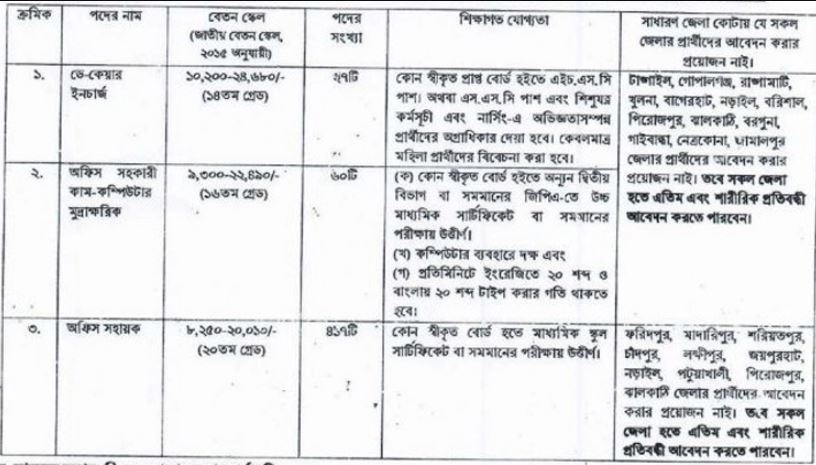 ক্রমিক
পদের নাম
বেতন স্কেল
(জাতীয় বেতন স্কেল,
২০১৫ অনুযায়ী)
পদের
সংখ্যা
শিক্ষাগত যোগ্যতা
সাধারণ জেলা কোটায় যে সকল
জেলার প্রার্থীদের আবেদন করার
প্রয়োজন নাই।
১.
ডে-কেয়ার
ইনচার্জ
১০,২০০-২৪,৬৮০/-
(১৪তম গ্রেড)
২৭টি
কোন স্বীকৃত প্রাপ্ত বোর্ড হইতে এইচ.এস.সি
পাশ। অথবা এস.এস.সি পাশ এবং শিশুযত্ন
কর্মসূচী এবং নার্সিং-এ অভিজ্ঞতাসম্পন্ন
প্রার্থীদের অগ্রাধিকার দেয়া হবে। কেবলমাত্র
মহিলা প্রার্থীদের বিবেচনা করা হবে।
টাঙ্গাইল, গোপালগঞ্জ, রাঙ্গামাটি,
খুলনা, বাগেরহাট, নড়াইল, বরিশাল,
পিরোজপুর, ঝালকাঠি, বরগুনা,
গাইবান্ধা, নেত্রকোনা, জামালপুর
জেলার প্রার্থীদের আবেদন করার
প্রয়োজন নাই। তবে সকল জেলা
হতে এতিম এবং শারীরিক প্রতিবন্ধী
আবেদন করতে পারবেন।
২.
অফিস সহকারী
কাম-কম্পিউটার
মুদ্রাক্ষরিক
৯,৩০০-২২,৪৯০/-
(১৬তম গ্রেড)
৬০টি
(ক) কোন স্বীকৃত বোর্ড হইতে অন্যূন দ্বিতীয়
বিভাগ বা সমমানের জিপিএ-তে উচ্চ
মাধ্যমিক সার্টিফিকেট বা সমমানের
পরীক্ষায় উত্তীর্ণ।
(খ) কম্পিউটার ব্যবহারে দক্ষ এবং
(গ) প্রতিমিনিটে ইংরেজিতে ২০ শব্দ ও
বাংলায় ২০ শব্দ টাইপ করার গতি থাকতে
হবে।
৩.
অফিস সহায়ক
৮,২৫০-২০,০১০/-
(২০তম গ্রেড)
৪১৭টি
কোন স্বীকৃত বোর্ড হতে মাধ্যমিক স্কুল
সার্টিফিকেট বা সমমানের পরীক্ষায় উত্তীর্ণ।
ফরিদপুর, মাদারিপুর, শরিয়তপুর,
চাঁদপুর, লক্ষীপুর, জয়পুরহাট,
নড়াইল, পটুয়াখালী, পিরোজপুর,
ঝালকাঠি জেলার প্রার্থীদের আবেদন
করার প্রয়োজন নাই। তবে সকল
জেলা হতে এতিম এবং শারীরিক
প্রতিবন্ধী আবেদন করতে পারবেন।